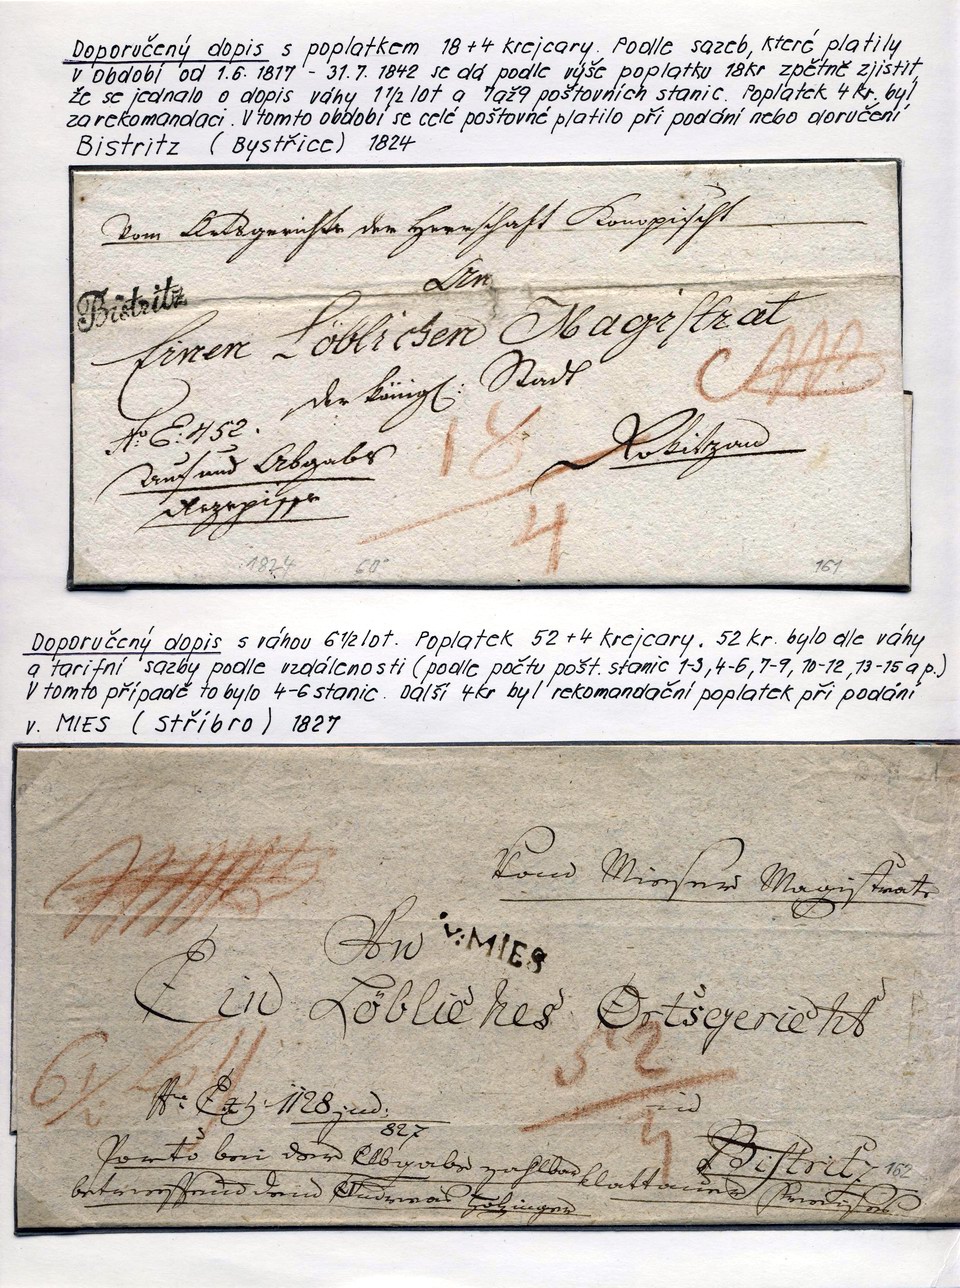 Doporučený dopis s poplatkem 18+4 krejcary. Podle sazeb, které platily
v období od 1.6. 1817 - 31.7. 1842 se dá podle výše poplatku 18kr zpětně zjistit,
že se jednalo o dopis váhy 1 1/2 lot a 7až9 poštovních stanic. Poplatek 4 kr. byl
za rekomandaci. V tomto období se celé poštovné platilo při podání nebo doručení
Bistritz (Bystřice) 1824
Vom Ortsgerichte der Herrschaft Konopischt
An
Bistritz
Einen Löblichen Magistrat
der königl: Stadt
No E: 452.
18
Rokitzan
auf und Abgabs
Rezepisse
4
1824 60 161
Doporučený dopis s váhou 6 1/2 lot. Poplatek 52+4 krejcary. 52 kr. bylo dle váhy
a tarifní sazby podle vzdálenosti (podle počtu pošt. stanic 1-3, 4-6, 7-9, 10-12, 13-15 a p.)
V tomto případě to bylo 4-6 stanic. Další 4kr byl rekomandační poplatek při podání
v. MIES (Stříbro) 1827
Vom Mieser Magistrate
An
v: MIES
Ein Löbliches Ortsgericht
6 1/2 Loth
52
Nr Exh: 1128 jud:
827
in
4
Porto bei der Abgabe zahlbar
Bistritz
162
Klattauer Kreises
betreffend den Andreas